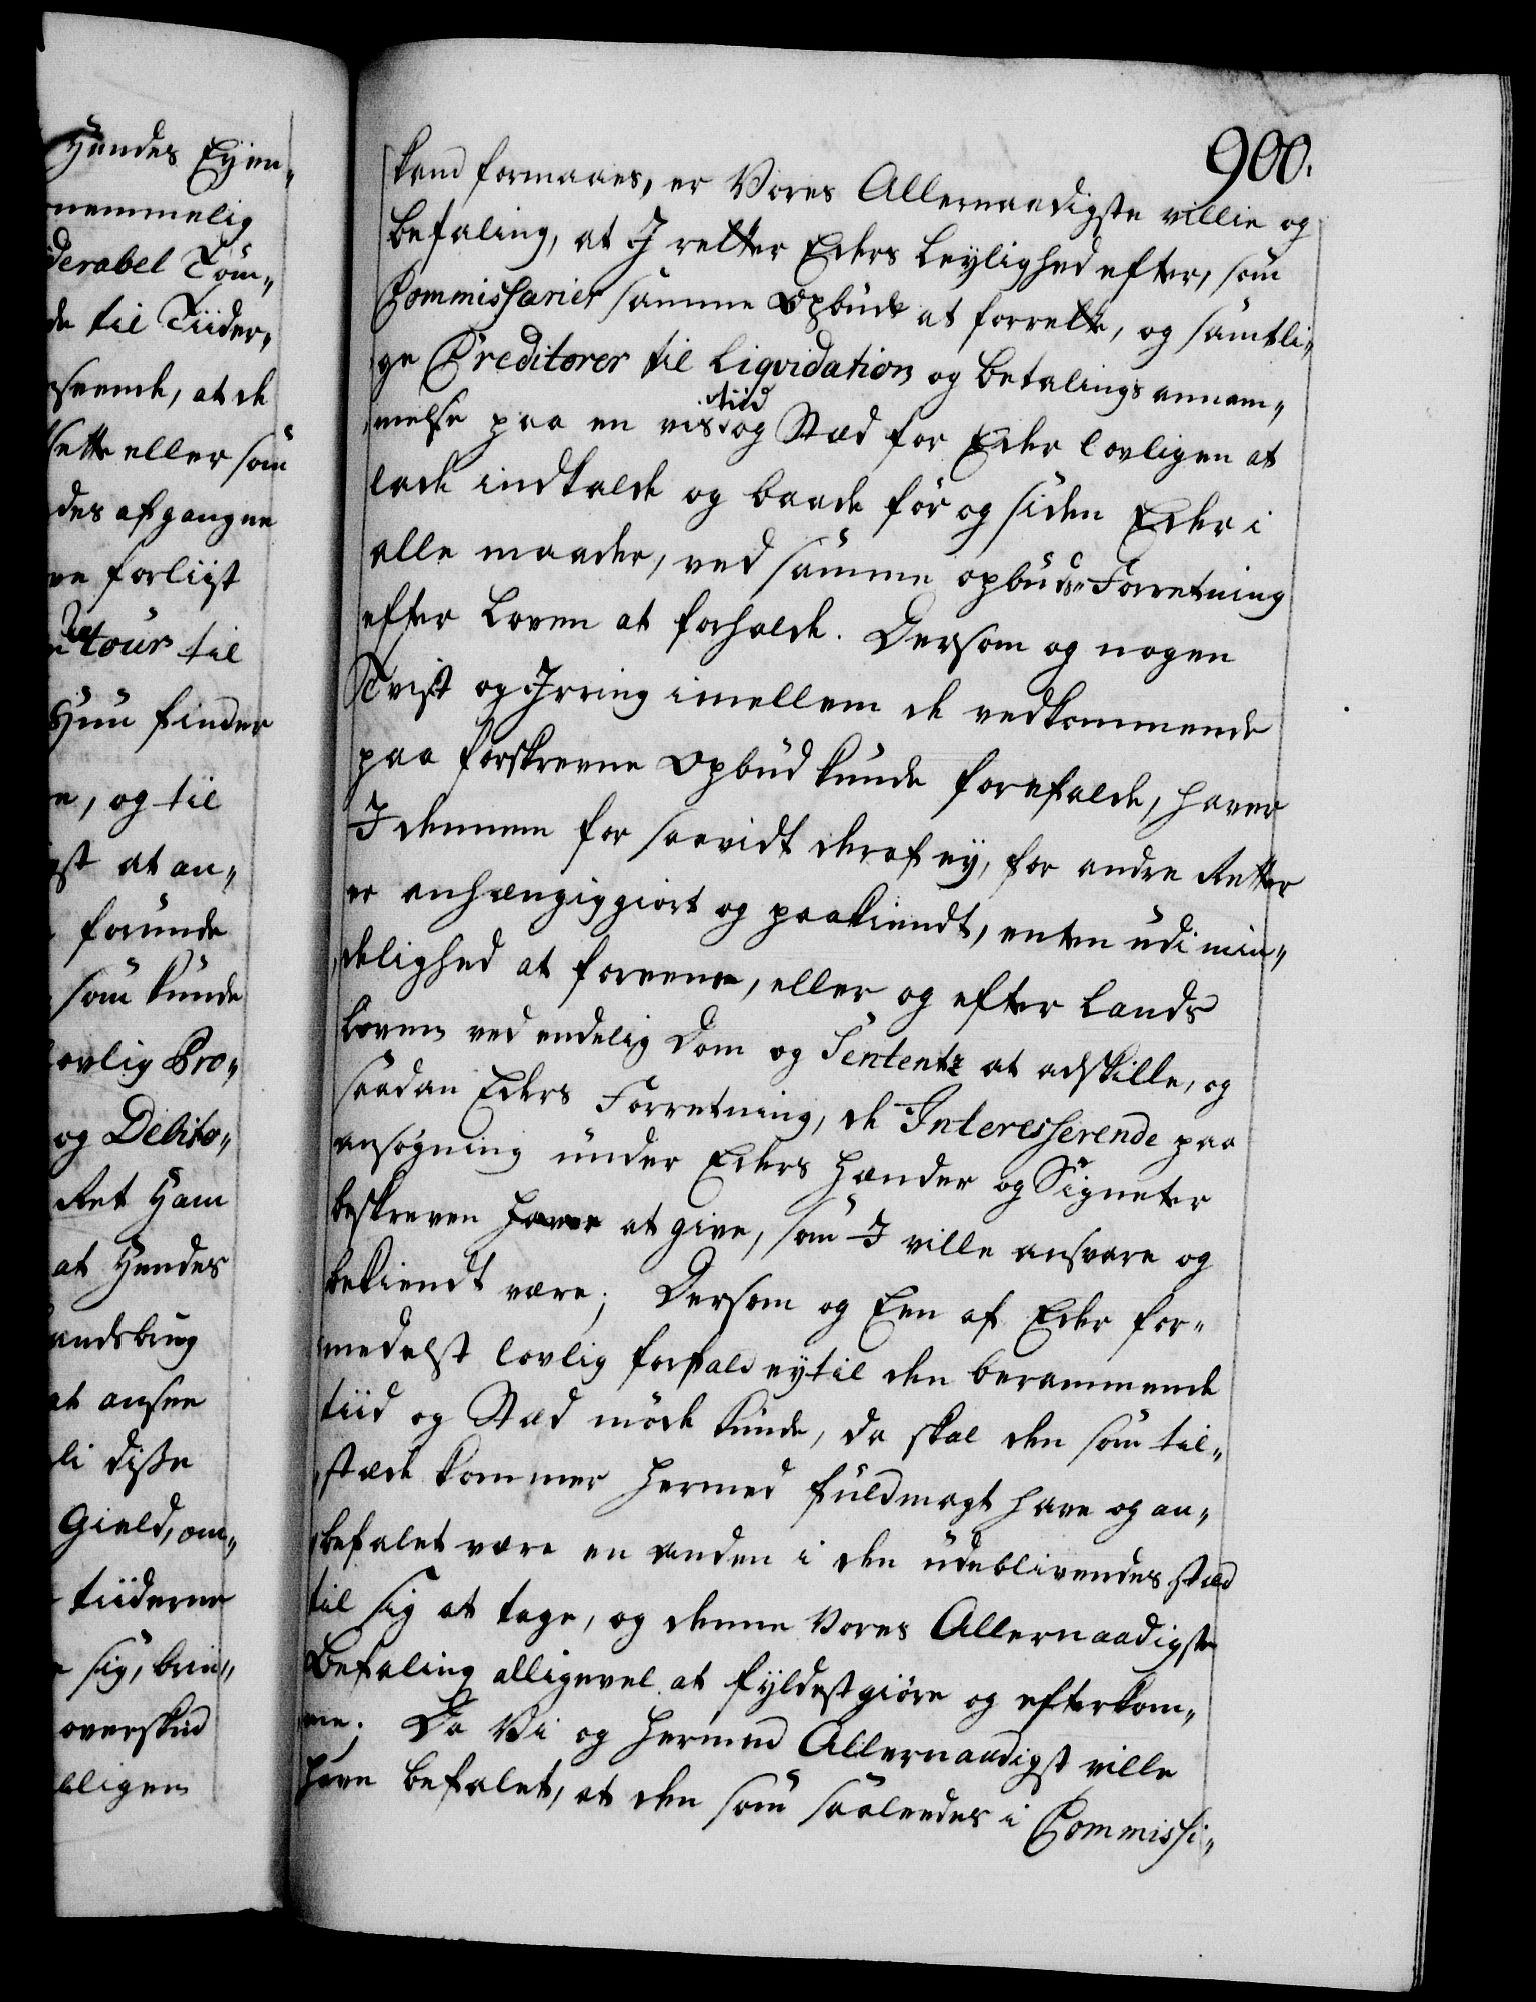 Hendes Eyen„
nemmelig
derabel Tøm„
de til Tiider„
seende, at de
sette eller som
des afgangne
ve forliist
Retour til
Huu finder
e, og til
gst at an„
forunde
som kunde
lovlig Pro„
og Debito„
Ret Ham
at Hendes
andsbrug
at ansee
li disse
Gield, om„
tiiderne
sig, brin„
overskud
ligen
900.
kand formaaes, er Vores Allernaadigste villie og
befaling, at I retter Eders Leylighed efter, som
Commissarier samme Opbud at forrette, og samtli„
ge Creditorer til Liqvidation og betalings annam„
melse paa en vis tiid og Stæd for Eder lovligen at
lade indkalde og baade før og siden Eder i
alle maader, ved samme opbuds-Forretning
efter Loven at forholde. Dersom og nogen
Tvist og Irring imellem de vedkommende
paa forskrevne Opbud kunde forefalde, haver
I dennem for saavidt deraf ey, for andre Retter
er anhængiggiort og paakiendt, enten udi min„
delighed at foreene, eller og efter Lands
Loven ved endelig Dom og Sententz at adskille, og
saadan Eders Forretning, de Interesserende paa
ansøgning under Eders Hænder og Signeter
beskreven have at give, som I ville ansvare og
bekiendt være; Dersom og Een af Eder for„
medelst lovlig forfald ey til den berammende
tiid og Stæd møde kunde, da skal den som til„
stæde kommer hermed fuldmagt have og an„
befalet være en anden i den udeblivendes stæd
til sig at tage, og denne Vores Allernaadigste
Befaling alligevel at fyldestgiøre og efterkom„
me; Da Vi og hermed Allernaadigst ville
have befalet, at den som saaledes i Commissi„